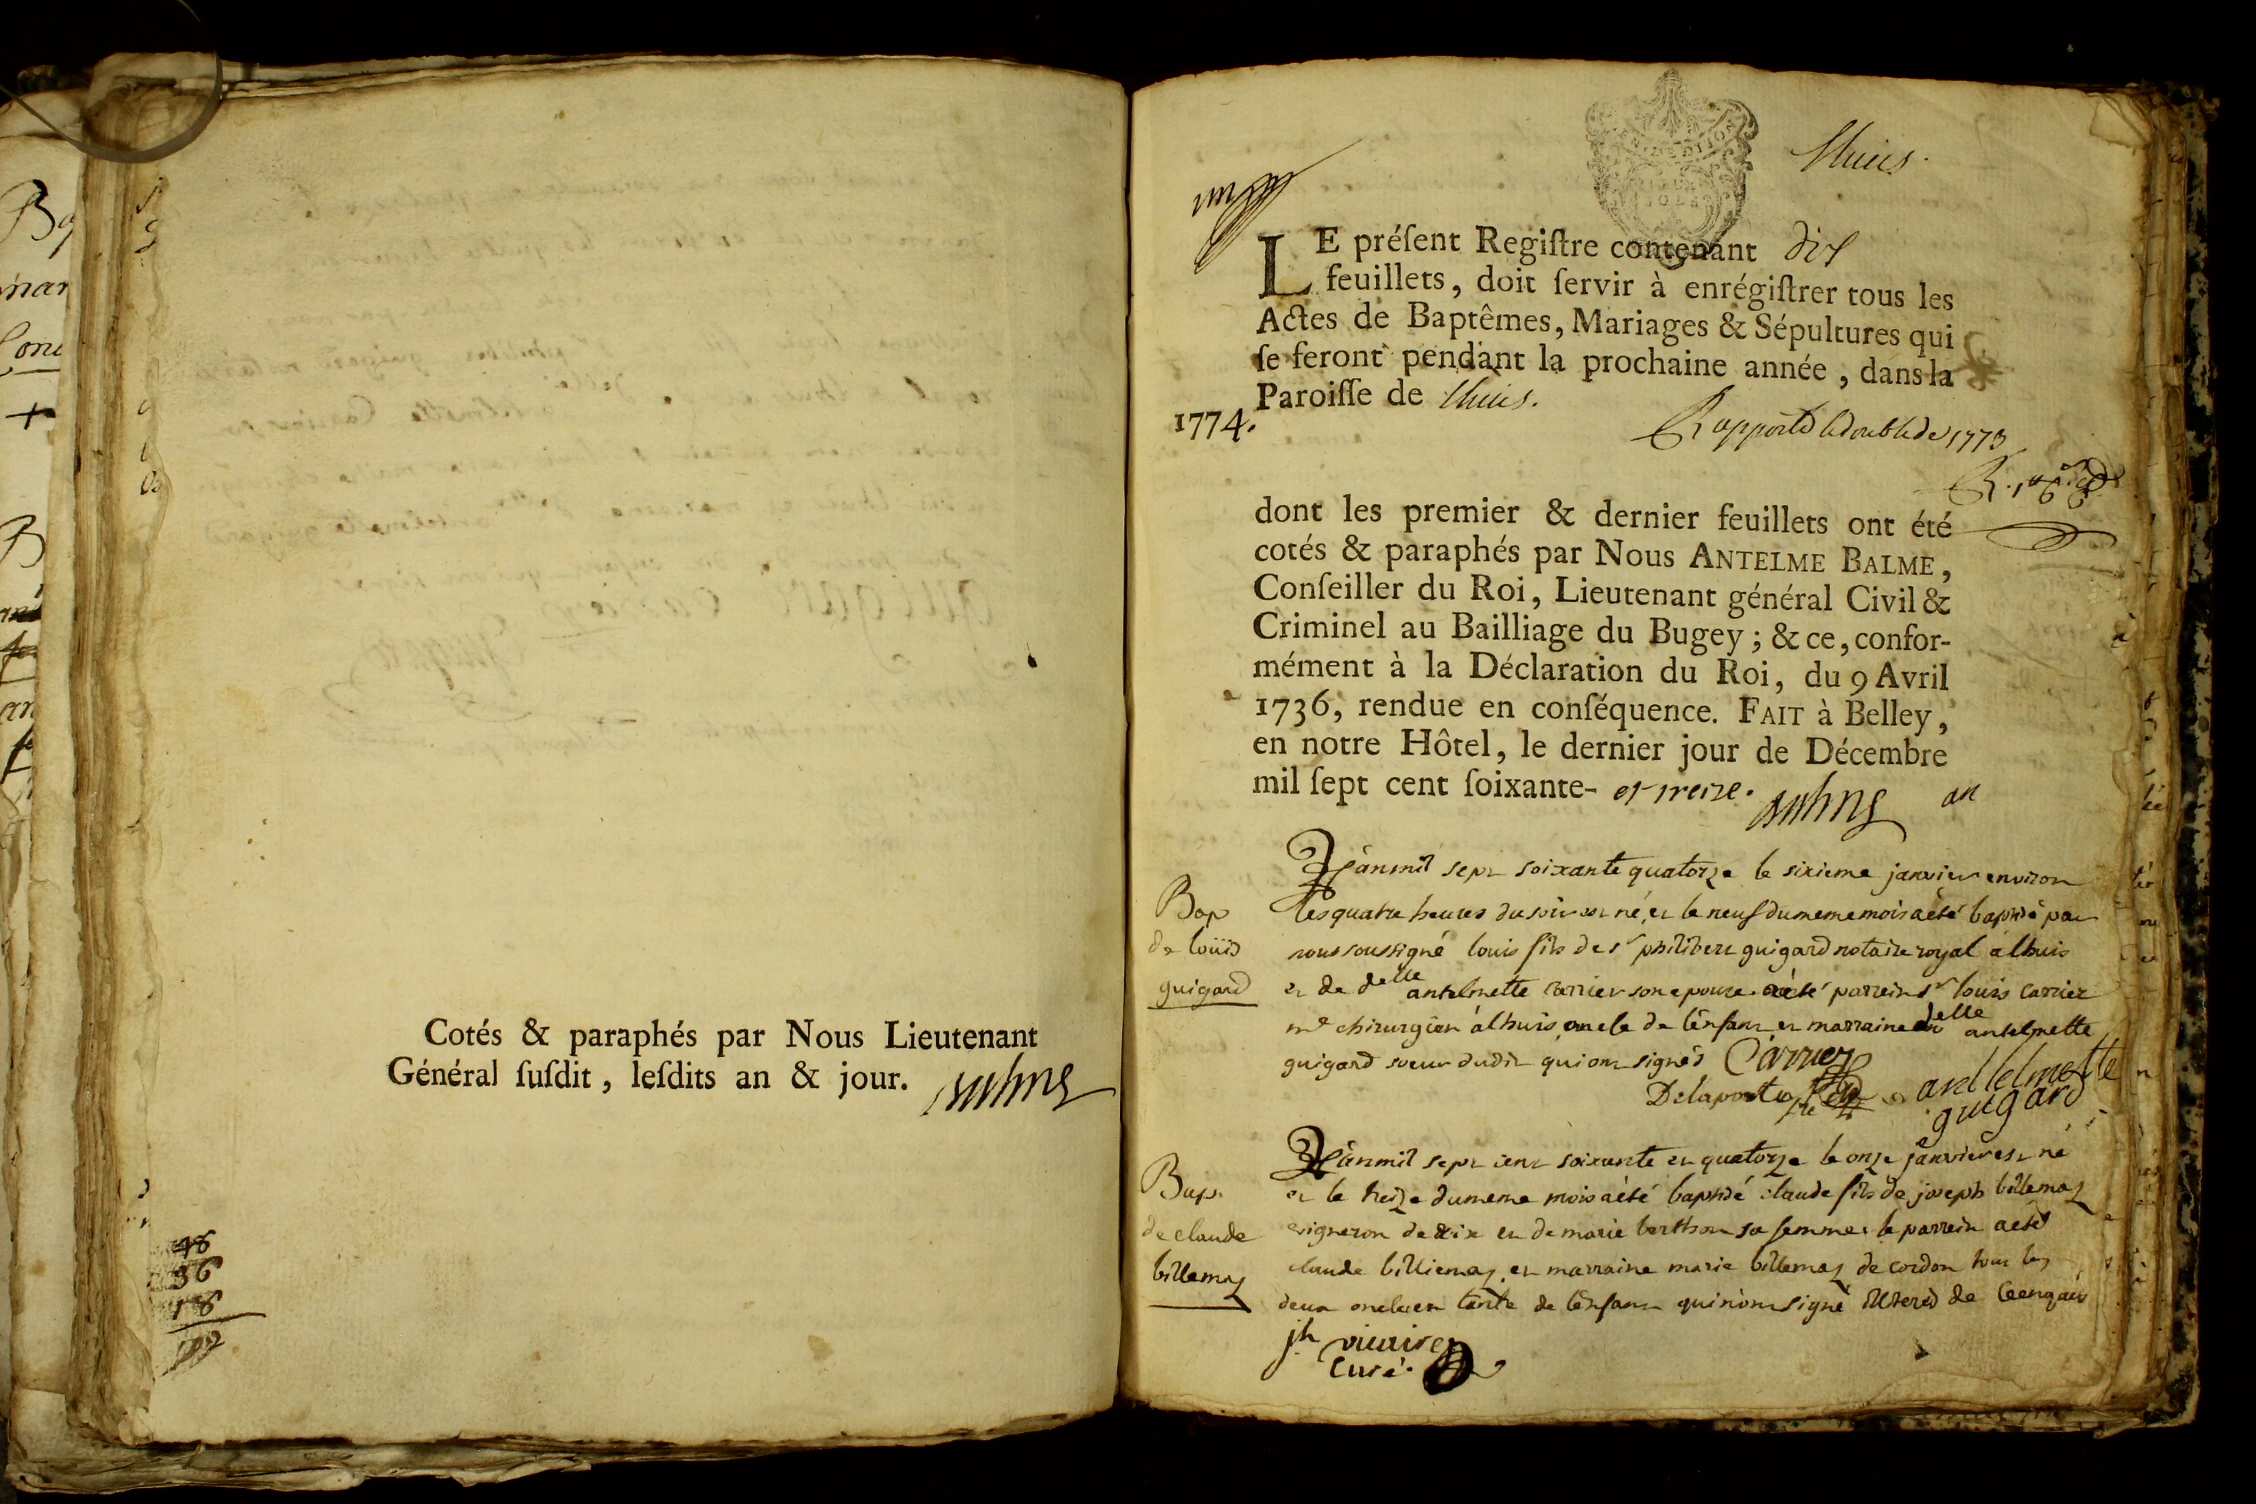 Cotés & paraphés par Nous Lieutenant
Général ſuſdit, leſdits an & jour.
48
36
18
Lhuis.
LE préſent Regiſtre contenant dix
feuillets, doit ſervir à enrégiſtrer tous les
Actes de Baptêmes, Mariages & Sépultures qui
ſe feront pendant la prochaine année, dans la
Paroiſſe de Lhuis.
1774.
Rapporté le double de 1773
dont les premier & dernier feuillets ont été
cotés & paraphés par Nous ANTELME BALME,
Conſeiller du Roi, Lieutenant général Civil &
Criminel au Bailliage du Bugey; & ce, confor-
mément à la Déclaration du Roi, du 9 Avril
1736, rendue en conſéquence. FAIT à Belley,
en notre Hôtel, le dernier jour de Décembre
mil ſept cent ſoixante- et treize.
Bap
de loüis
guigard
L'an mil sept soixante quatorze le sixieme janvier environ
les quatre heures du soir est né, et le neuf du meme mois a été baptisé par
nous soussigné louis fils de sr philibert guigard notaire royal a lhuis
et de delle antelmette carrier son epouse. a été parrein sr louis carrier
me chirurgien a lhuis oncle de l'enfant et marraine delle antelmette
guigard soeur dudit qui ont signés Carrier
Delaporte
antelmette
guigard
Bap.
de claude
billemaz
L'an mil sept cent soixante et quatorze le onze janvier est né
et le treize du meme mois a été baptisé claude fils de joseph billemaz
vigneron de et de marie berthon sa femme. le parrein a été
claude billiemaz, et marraine marie billemaz de cordon tous les
deux oncle et tante de l'enfant qui n'ont signé de ce enquis
jh
curé.